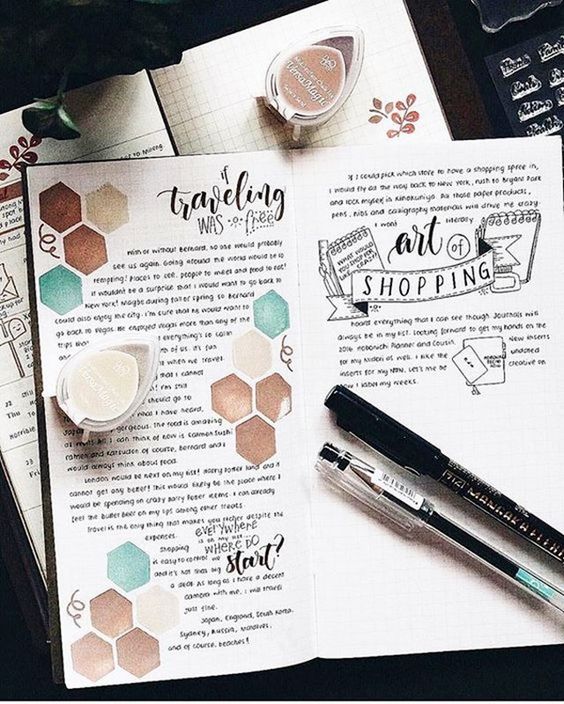 if
traveling
WAS free
With or without Bernard, no one would probably
see us again. Going around the world would be so
tempting! Places to see, people to meet and food to eat!
It wouldn't be a surprise that I would want to go back to
New York! Maybe during fall or spring so Bernard
could also enjoy the city. I'm sure he would want to
go back to Vegas. He enjoyed Vegas more than any of the
trips that
everything's so calm
of us. It's fun
when we travel.
that I cannot
I'm still
should go to
what I have heard,
Japan gorgeous. The food is amazing
as well. All I can think of now is Salmon Sushi
Ramen and Katsudon of course, Bernard and I
would always think about food.
London would be next on my list! Harry Potter land and it
cannot get any better! This would likely be the place where I
would be spending on crazy Harry Potter items. I can already
feel the butter beer on my lips among other treats.
Travel is the only thing that makes you richer despite the
expenses. everywhere
is on my list
Shopping WHERE DO
is easy to control start?
and it's not that big
a deal as long as I have a decent
camera with me. I will travel
just fine.
Japan, England, South Korea,
Sydney, Russia, Maldives,
and of course, beaches!
If I could pick which store to have a shopping spree in,
I would fly all the way back to New York, rush to Bryant Park
and lock myself in Kinokuniya. All those paper products,
pens, nibs and calligraphy materials will drive me crazy.
I want literally
WHAT WOULD YOU SHOP LIKE
art of
SHOPPING
hoard everything that I can see though. Journals will
always be in my list. Looking forward to get my hands on the
2016 Hobonichi Planner and Cousin. New inserts
for my Midori as well. I like the undated
inserts for my MTN. Let's me be creative on
how I label my weeks.
VersaMagic
VersaMagic
Horrible